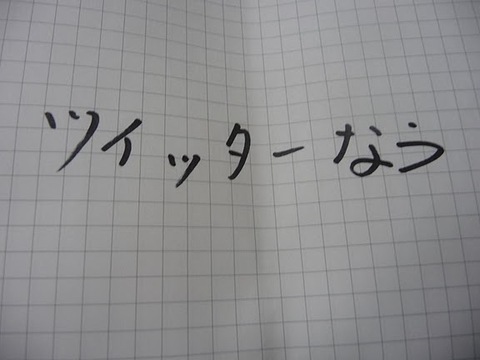 ツイッターなう